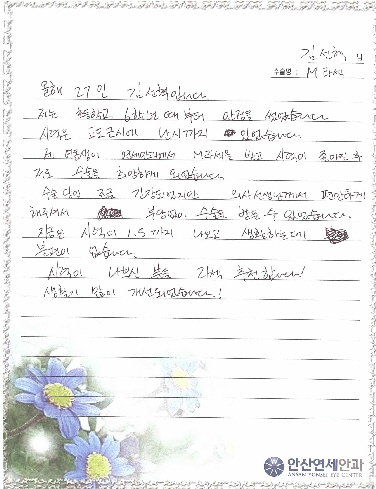 김선혁 님
수술명 : M라섹
올해 27인 김선혁입니다
저는 초등학교 6학년 때부터 안경을 썼었습니다
시력은 고도근시에 난시까지 있었습니다.
제 여동생이 연세안과에서 M라섹을 받고 시력이 좋아진 후
저도 수술을 희망하게 되었습니다.
수술 당일 조금 긴장되었지만 의사선생님께서 편안하게
해주셔서 부담없이 수술을 받을 수 있었습니다.
지금은 시력이 1.5까지 나오고 생활하는데
불편이 없습니다.
시력이 나쁘신 분들 라섹 추천합니다!
생활이 많이 개선되었습니다!
안산연세안과
ANSAN YONSEI EYE CENTER